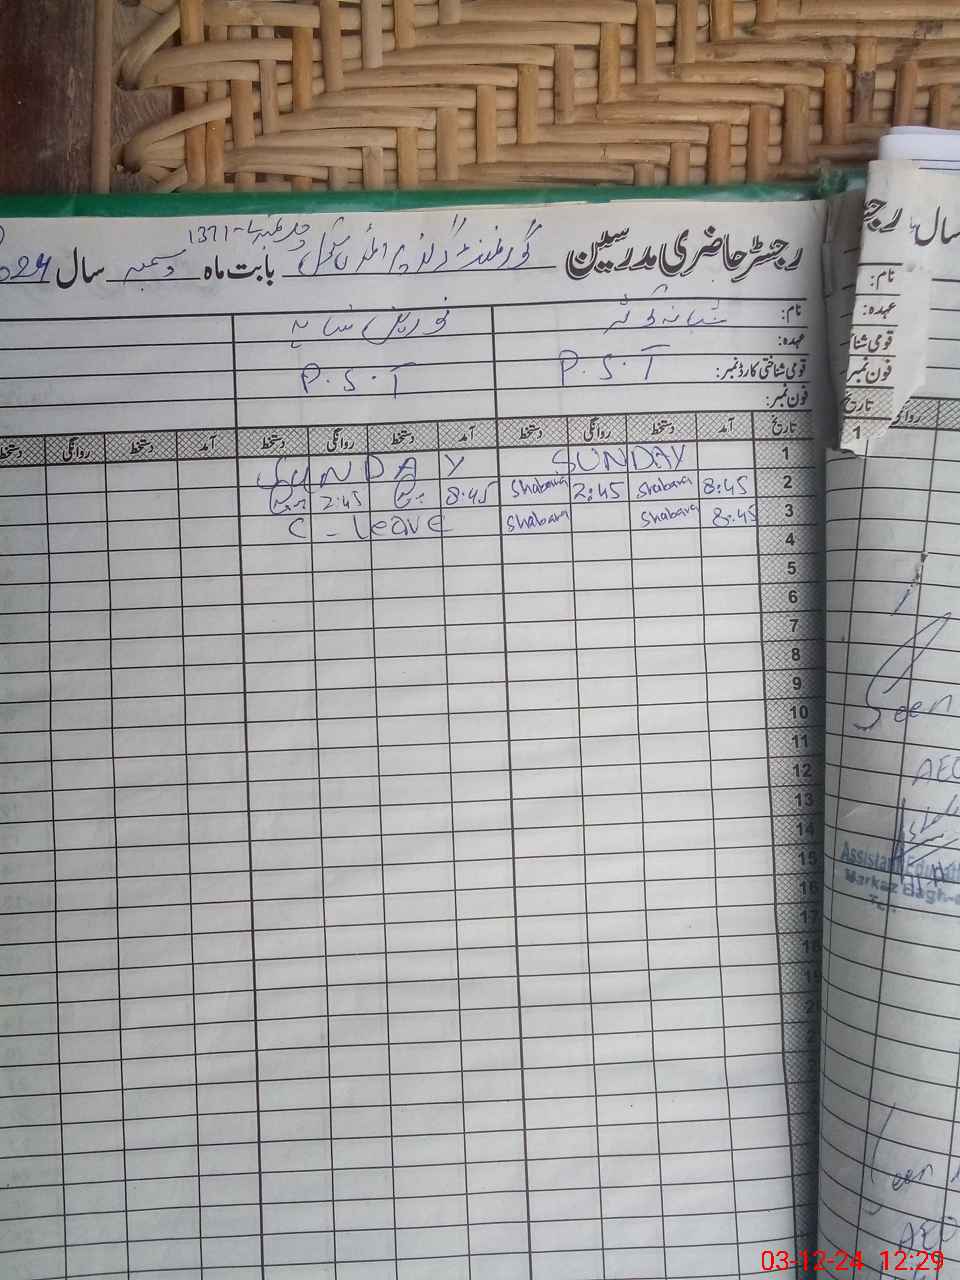 رجسٹر حاضری مدرسین گورنمنٹ گرلز پرائمری سکول 1371 بابت ماہ دسمبر سال 2024
نام: شبانہ
عہدہ:
قومی شناختی کارڈ نمبر: P.S.T P.S.T
فون نمبر:
تاریخ آمد دستخط روانگی دستخط آمد دستخط روانگی دستخط آمد دستخط روانگی دستخط
1 SUNDAY SUNDAY
2 8:45 Shabana 2:45 Shabana 8:45 2:45
3 8:45 Shabana Shabana C - Leave
4
5
6
7
8
9
10
11
12
13
14
15
16
17
18
19
سال
نام:
عہدہ:
قومی شنا
فون نمبر
تاریخ
1
Seen
AEO
Assistant Educat
Markaz Bagh-
Seen
AEO
03-12-24 12:29